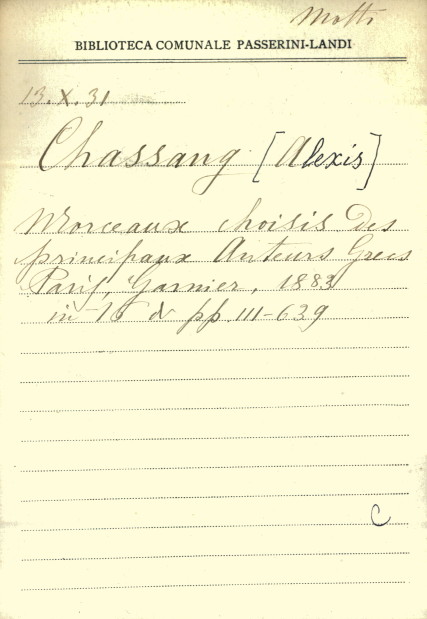 Motti
BIBLIOTECA COMUNALE PASSERINI-LANDI
13.X.31
Chassang [Alexis]
Morceaux choisis des
principaux Auteurs Grecs
Paris, Garnier, 1883
in 16 di pp. III-639
C